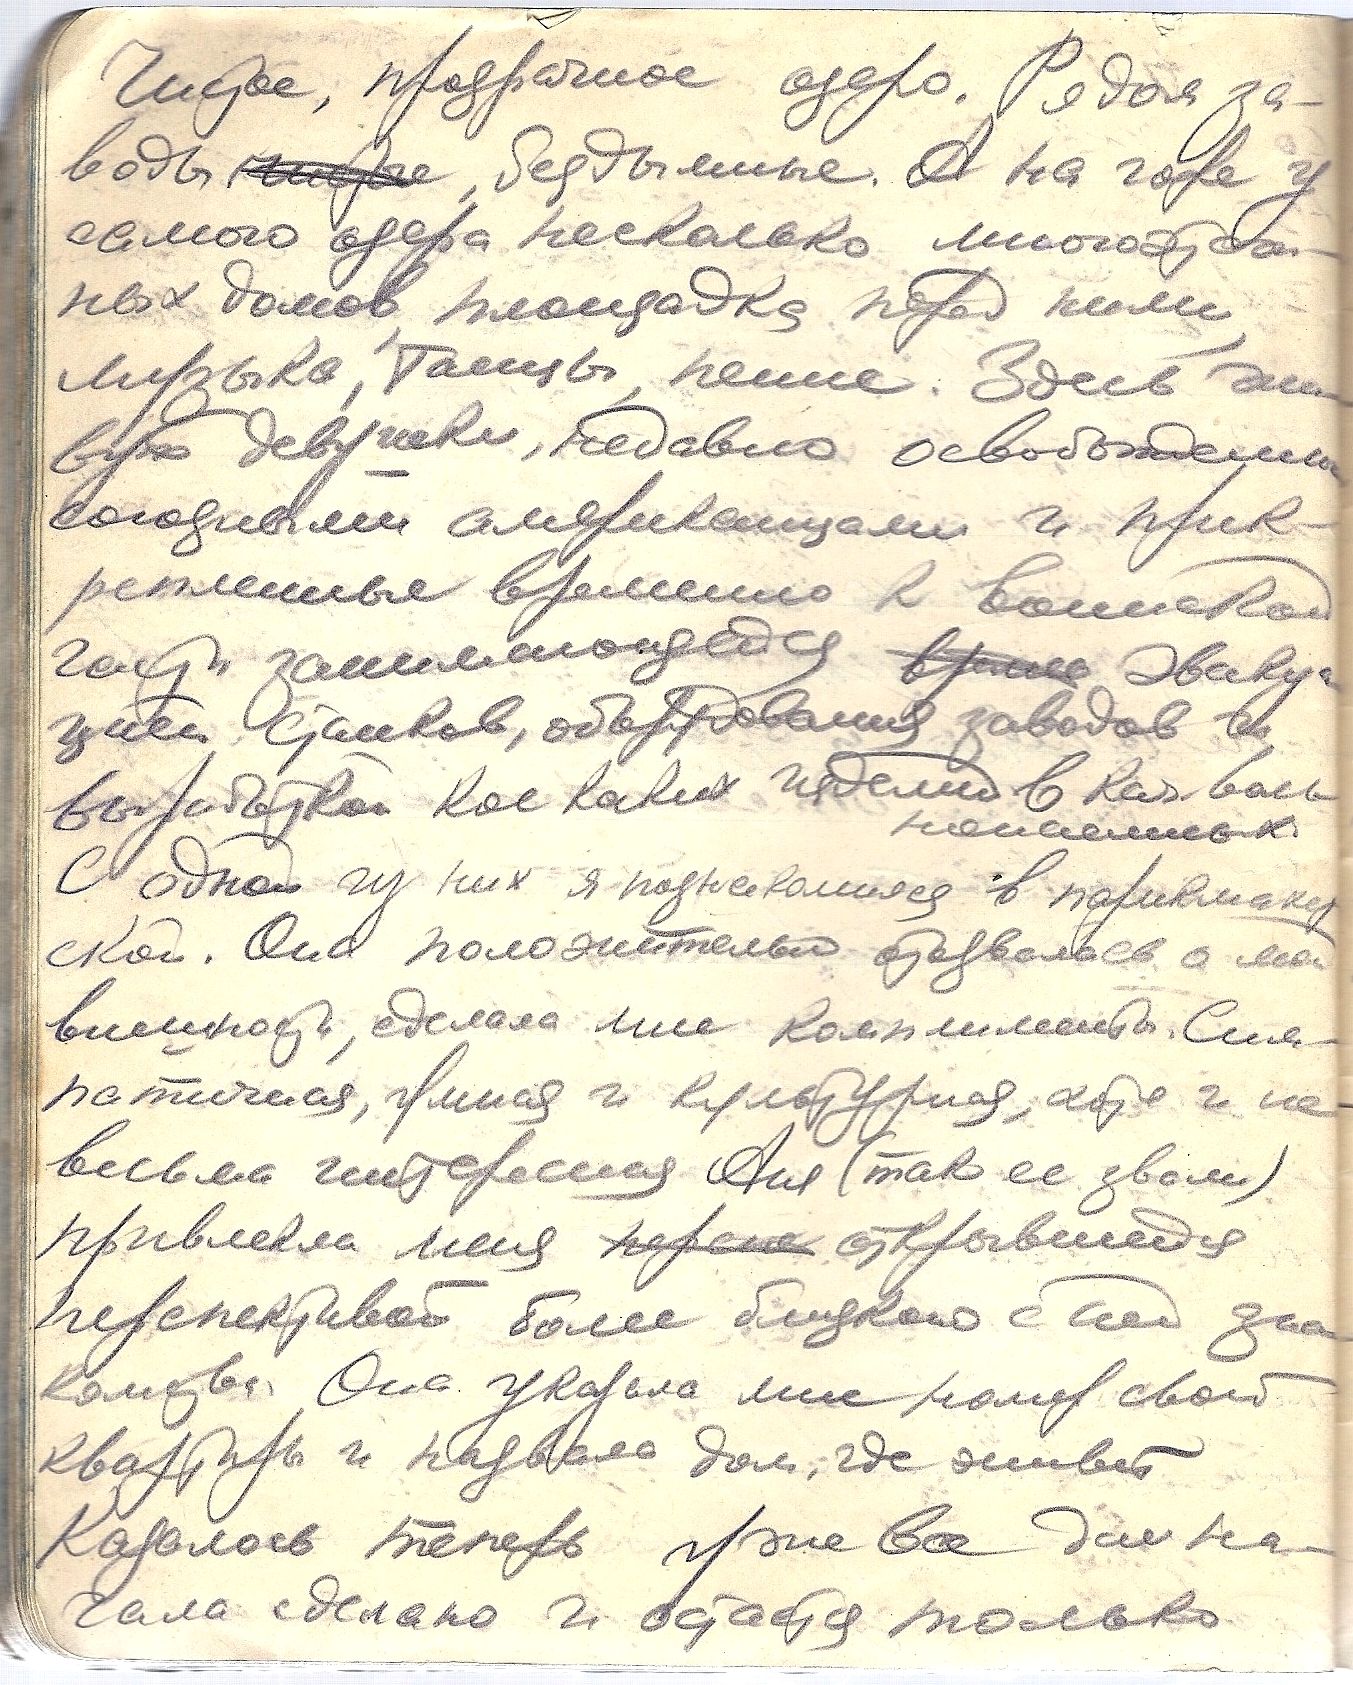 Чистое, прозрачное озеро. Рядом за-
воды чистые, бездымные. А на горе у
самого озера несколько многоэтаж-
ных домов, площадка перед ними,
музыка, танцы, пение. Здесь жи-
вут девушки, недавно освобожденны
союзными американцами и прик-
репленные временно к воинской
части занимающейся времен эвакуа
цией станков, оборудования заводов и
выработкой кое каких изделий в
национальных
С одной из них я познакомился в парикмахер
ской. Она положительно отозвалась о мой
внешности, сделала мне комплименты. Сим-
патичная, умная и культурная, хотя и не
весьма интересная Аня (так ее звали)
привлекла меня открывшейся
перспективой более близкого с ней зна
комства. Она указала мне номер своей
квартиры и назвала дом, где живет
Казалось теперь уже все для на-
чала сделано и остается только